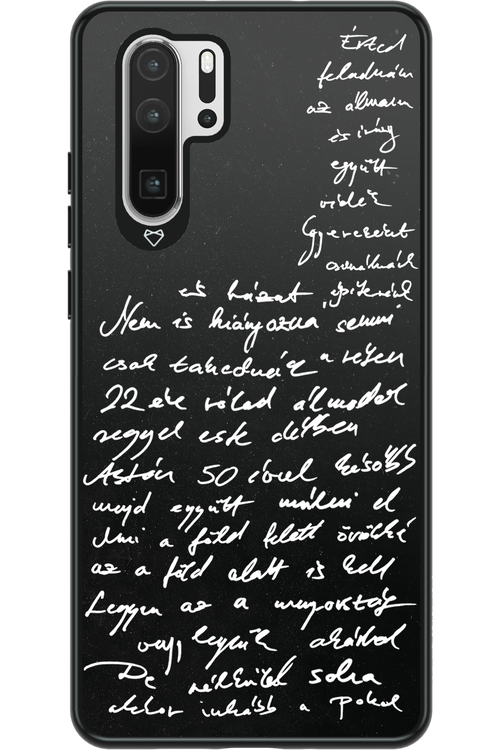 Érted
feladnám
az álmaim
és irány
együtt
vidék
Gyerekeket
csinálnánk
és házat építenénk
Nem is hiányozna semmi
csak takednák a réten
22 éve rólad álmodok
reggel este délben
Aztán 50 évvel később
majd együtt múlni el
Ami a föld felett örökké
az a föld alatt is kell
Legyen az a mennyország
vagy legyünk akárhol
De nélküled soha
akkor inkább a pokol